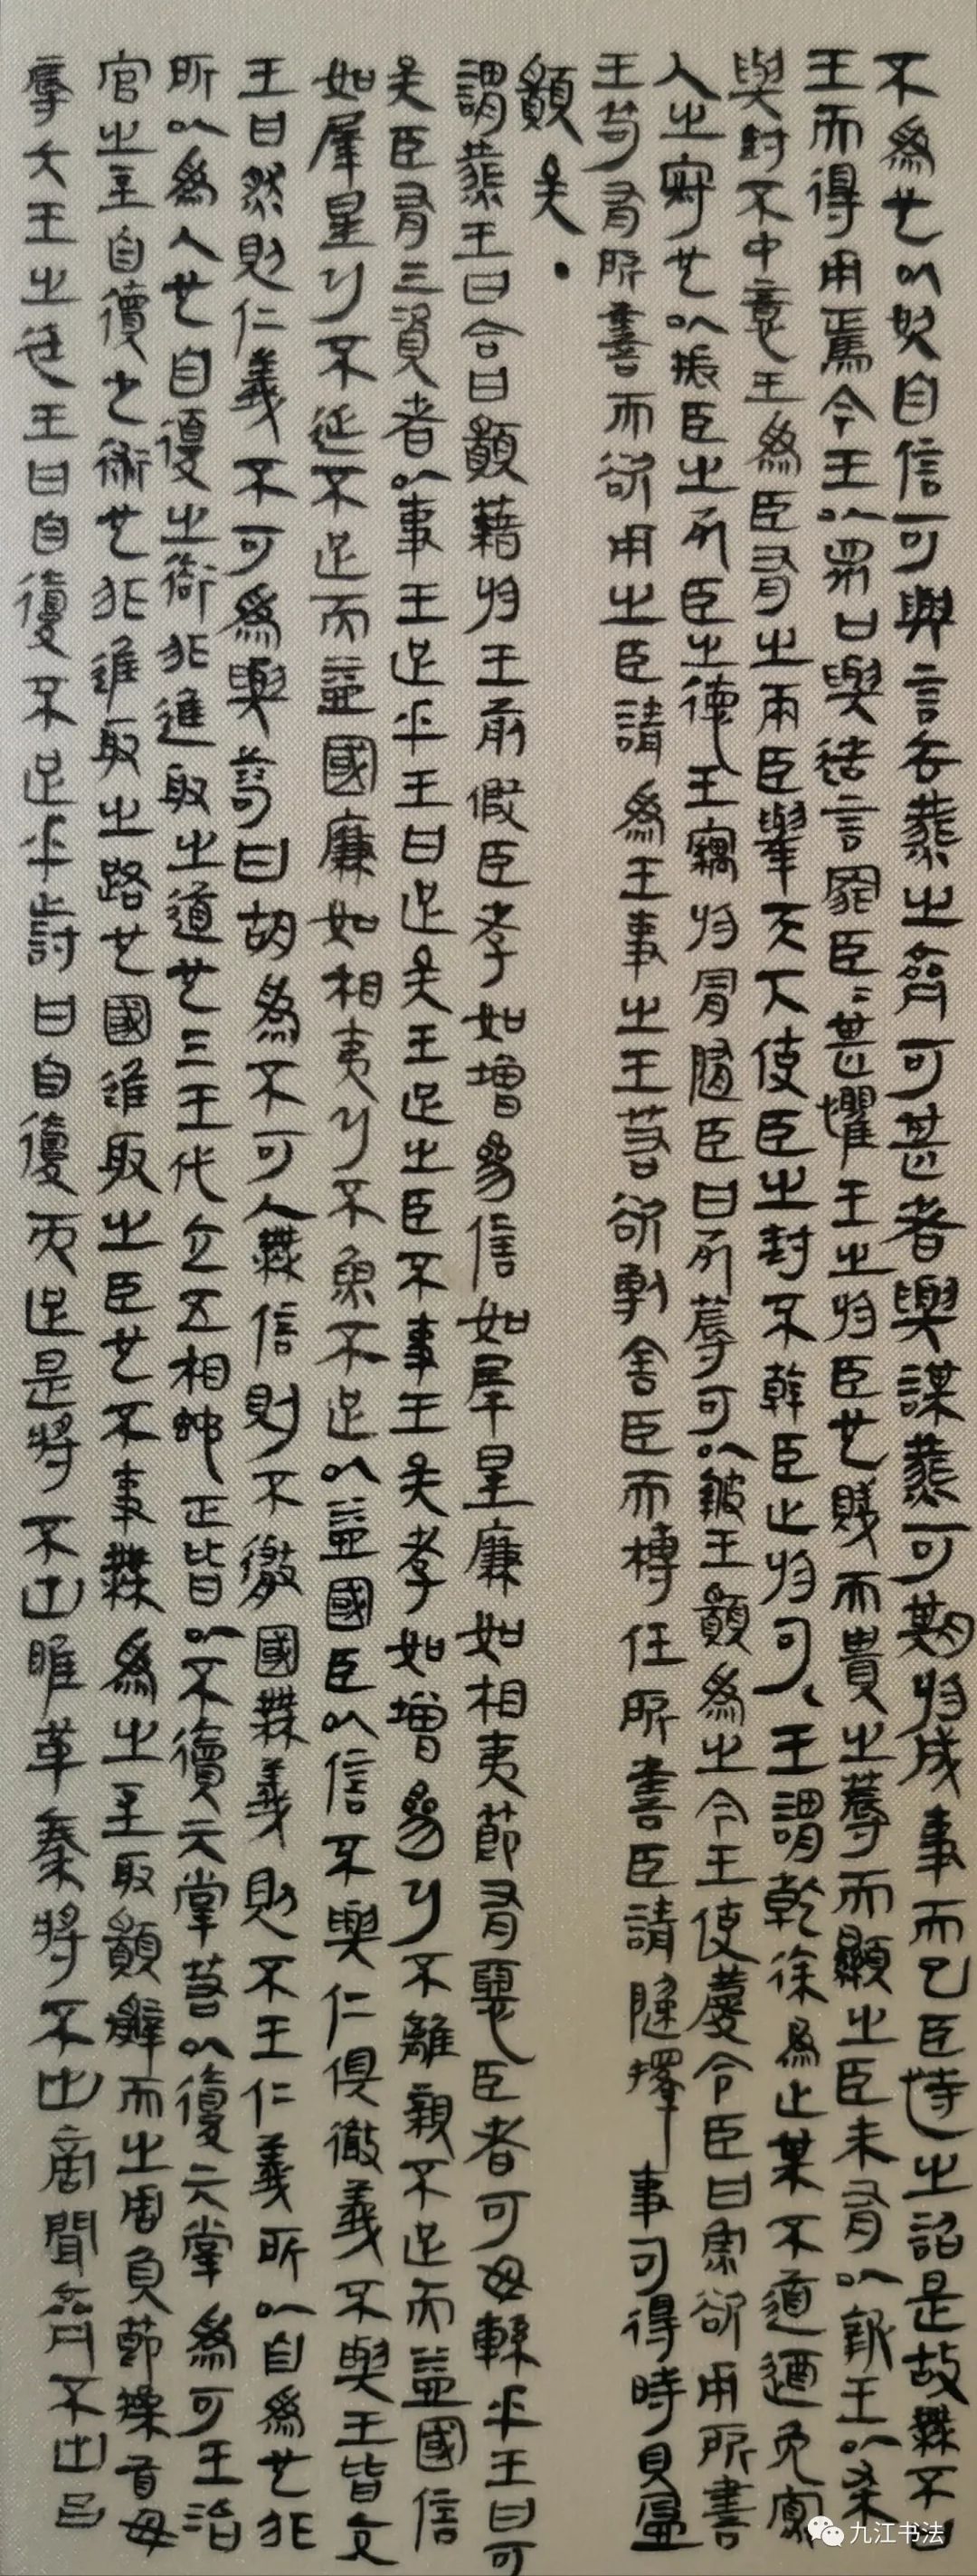 不為也以奴自信可與言去燕之齊可甚者與謀燕可期於成事而已臣恃之詔是故無不以口
王而得用焉今王以眾口與造言罪臣=甚懼王之於臣也賤而貴之蓐而顯之臣未有以報王以求
與封不中意王為臣有之兩臣舉天下使臣之封不臣止於可王謂乾徐為止某不道逎免寡
人之冠也以振臣之死臣之德王於骨隨臣曰死蓐可以報王願為之今王使慶令臣曰魚欲用所善
王苟有所善而欲用之臣請為王事之王若欲剸舍臣而槫任所善臣請隨擇事可得時見盈
願矣・
謂燕王曰今日願藉於王前假臣孝如增參信如犀星廉如相夷節有惡臣者可毋慙乎王曰可
矣臣有三資者以事王足乎王曰足矣王足之臣不事王矣孝如增參乃不離親不足而益國信
如犀星乃不延不足而益國廉如相夷乃不不足以益國臣以信不與仁俱徹義不與王皆立
王曰然則仁義不可為與對曰胡為不可人無信則不徹國無義則不王仁義所以自為也非
所以為人也自復之術非進取之道也三王代立五相蛇正皆以不復亓掌若以復亓掌為可王治
官之主自復之術也非進取之路也國進取之臣也不事無為之主取願辭而之周負節操首毋
辱大王之廷王曰自復不足乎對曰自復而足是將不出雎章秦將不出商閹齊不出呂
九江书法